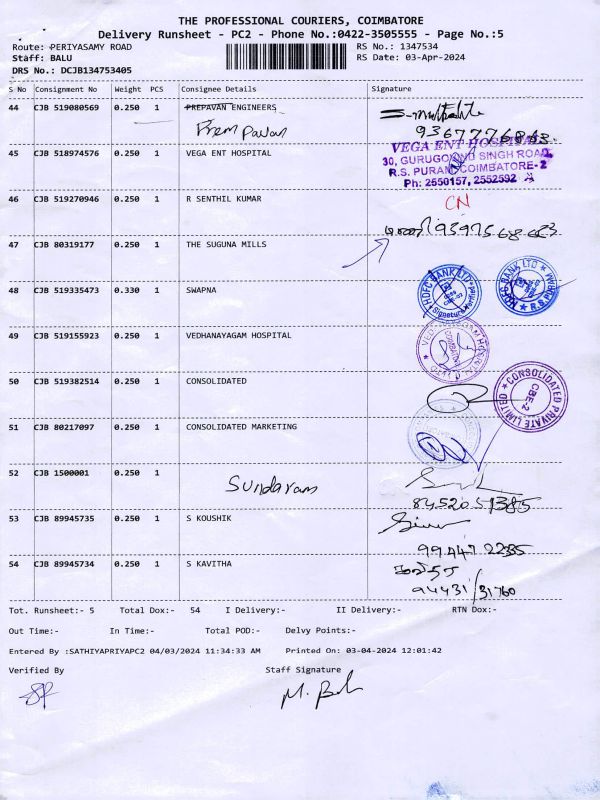 THE PROFESSIONAL COURIERS, COIMBATORE
Delivery Runsheet - PC2 - Phone No.:0422-3505555 - Page No.:5
Route: PERIYASAMY ROAD RS No.: 1347534
Staff: BALU RS Date: 03-Apr-2024
DRS No.: DCJB134753405
S No Consignment No Weight PCS Consignee Details Signature
44 CJB 519080569 0.250 1 PREPAVAN ENGINEERS
Prem Pavan
45 CJB 518974576 0.250 1 VEGA ENT HOSPITAL
VEGA ENT HOSPITAL
30, GURUGOVIND SINGH ROAD,
R.S. PURAM, COIMBATORE-2
Ph: 2550157, 2552592
46 CJB 519270946 0.250 1 R SENTHIL KUMAR
CN
47 CJB 80319177 0.250 1 THE SUGUNA MILLS
48 CJB 519335473 0.330 1 SWAPNA
HDFC BANK LTD
HDFC BANK LTD
R.S. PURAM
49 CJB 519155923 0.250 1 VEDHANAYAGAM HOSPITAL
50 CJB 519382514 0.250 1 CONSOLIDATED
CONSOLIDATED PRIVATE LIMITED
CBE-2
51 CJB 80217097 0.250 1 CONSOLIDATED MARKETING
52 CJB 1500001 0.250 1
Sundaram
8452051385
53 CJB 89945735 0.250 1 S KOUSHIK
99447 2235
54 CJB 89945734 0.250 1 S KAVITHA
94431/31760
Tot. Runsheet:- 5 Total Dox:- 54 I Delivery:- II Delivery:- RTN Dox:-
Out Time:- In Time:- Total POD:- Delvy Points:-
Entered By :SATHIYAPRIYAPC2 04/03/2024 11:34:33 AM Printed On: 03-04-2024 12:01:42
Verified By Staff Signature